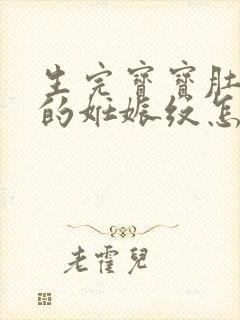 生完寶寶肚
的妊娠纹怎
老霍兒